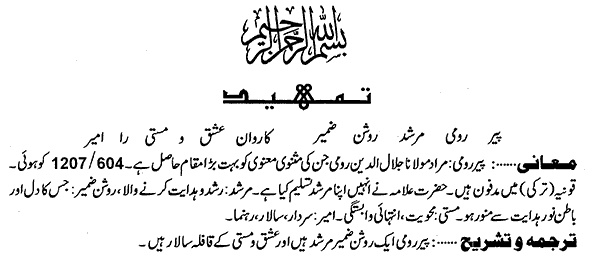 بسم اللہ الرحمن الرحیم
تمہید
پیر رومی مرشد روشن ضمیر کاروان عشق و مستی را امیر
معانی……: پیررومی: مراد مولانا جلال الدین رومی جن کی مثنوی معنوی کو بہت بڑا مقام حاصل ہے۔ 1207/604 کو ہوئی۔
قونیہ (ترکی) میں مدفون ہیں۔ حضرت علامہ نے انہیں اپنا مرشد تسلیم کیا ہے۔ مرشد: رشد و ہدایت کرنے والا، روشن ضمیر: جس کا دل اور
باطن نور ہدایت سے منور ہو۔ مستی: محویت، انتہائی وابستگی۔ امیر: سردار، سالار، رہنما۔
ترجمہ و تشریح……: پیر رومی ایک روشن ضمیر مرشد ہیں اور عشق و مستی کے قافلہ سالار ہیں۔